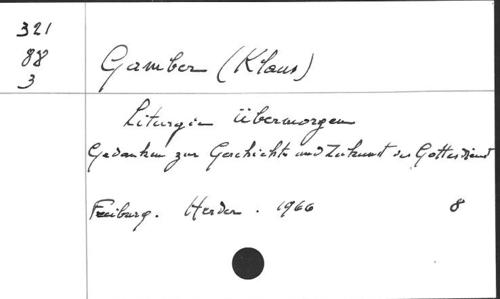 321
88
3
Gamber (Klaus)
Liturgie übermorgen
Gedanken zur Geschichte und Zukunft des Gottesdienst
Freiburg. Herder. 1966 8